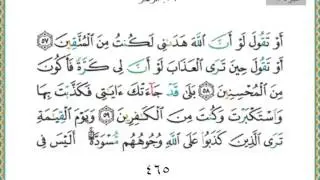 أَوْ تَقُولَ لَوْ أَنَّ ٱللَّهَ هَدَىٰنِي لَكُنتُ مِنَ ٱلْمُتَّقِينَ ٥٧
أَوْ تَقُولَ حِينَ تَرَى ٱلْعَذَابَ لَوْ أَنَّ لِي كَرَّةً فَأَكُونَ
مِنَ ٱلْمُحْسِنِينَ ٥٨ بَلَىٰ قَدْ جَآءَتْكَ ءَايَٰتِي فَكَذَّبْتَ بِهَا
وَٱسْتَكْبَرْتَ وَكُنتَ مِنَ ٱلْكَٰفِرِينَ ٥٩ وَيَوْمَ ٱلْقِيَٰمَةِ
تَرَى ٱلَّذِينَ كَذَبُوا۟ عَلَى ٱللَّهِ وُجُوهُهُم مُّسْوَدَّةٌ ۚ أَلَيْسَ فِي
٤٦٥